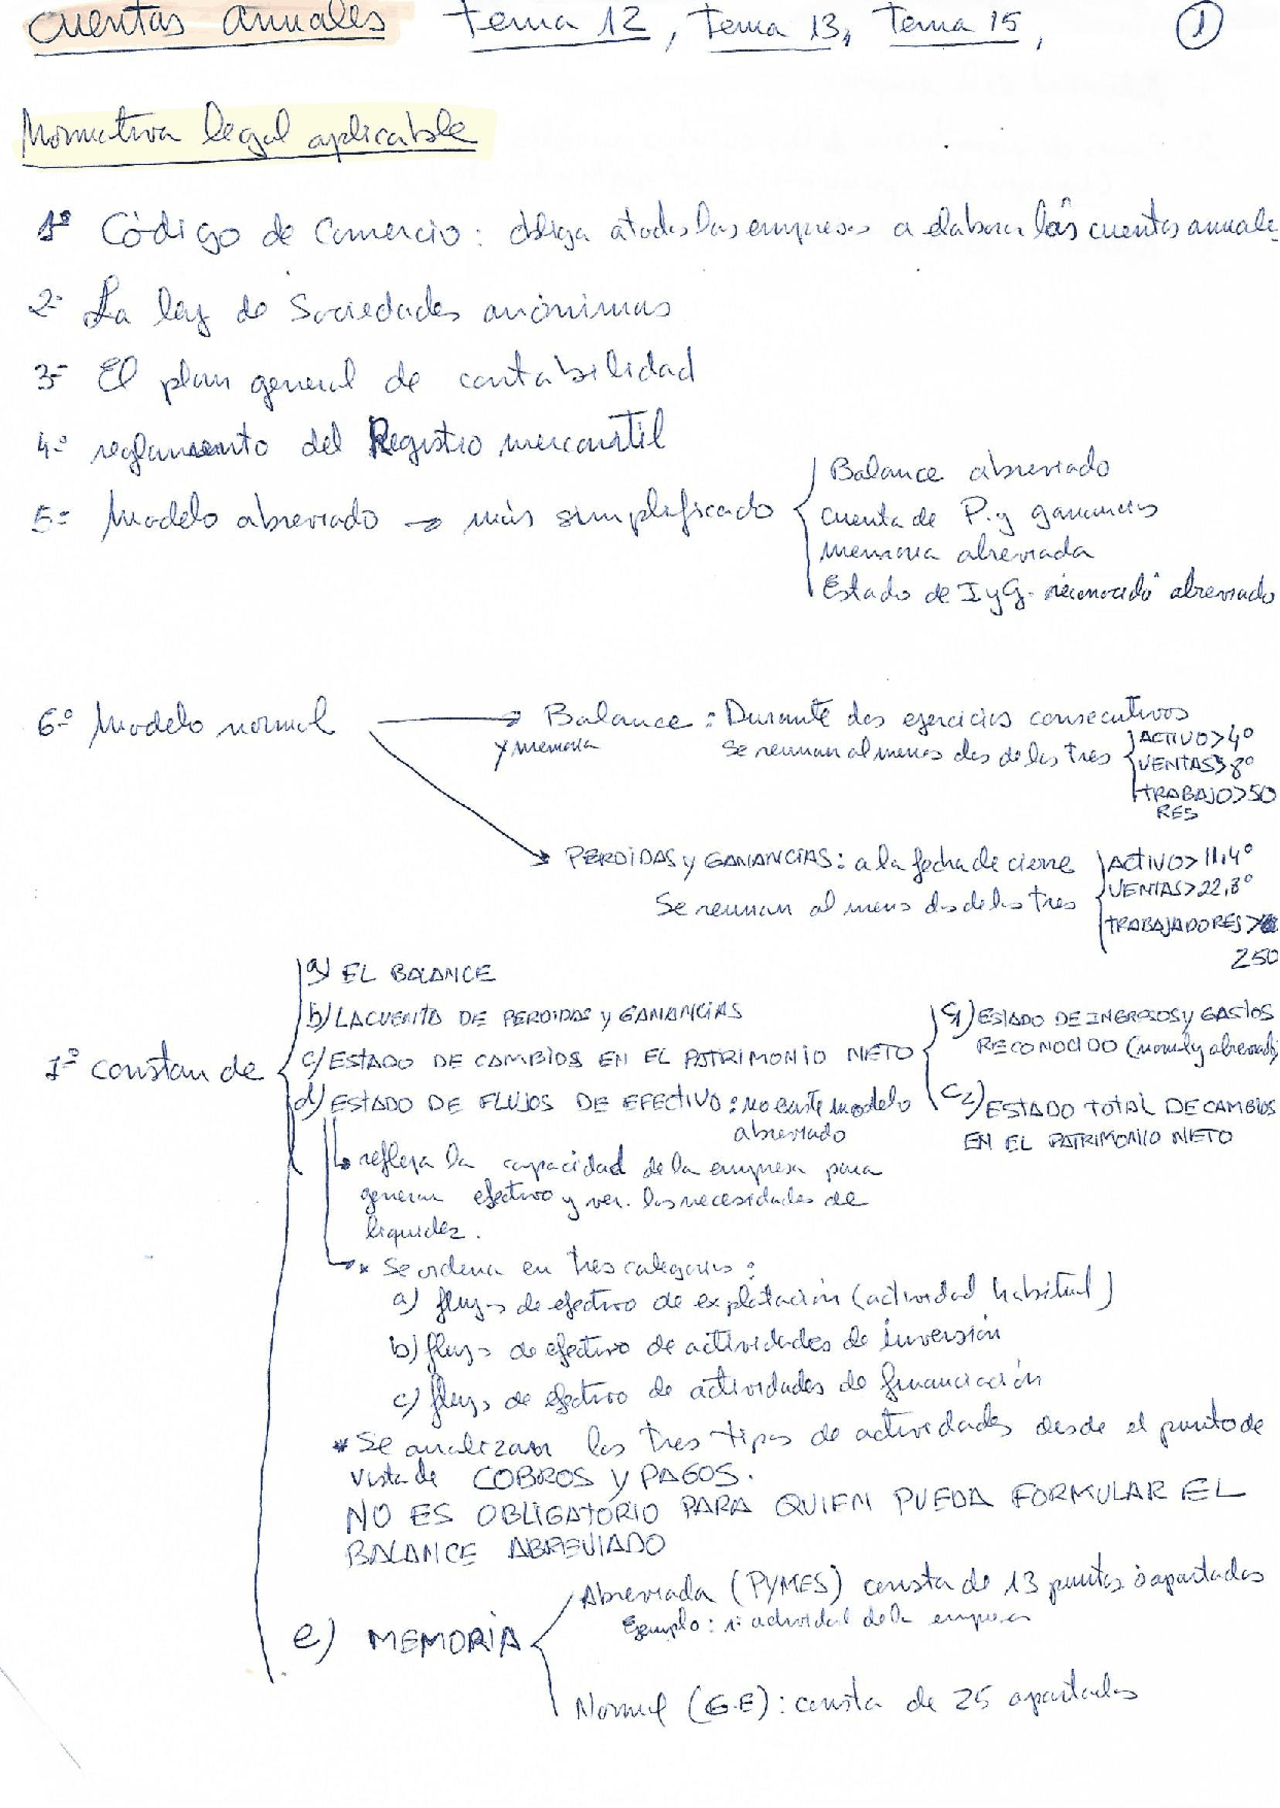 Cuentas anuales tema 12, Tema 13, Tema 15, 1
Normativa legal aplicable
1º Código de Comercio: obliga a todas las empresas a elaborar las cuentas anuales
2- La ley de Sociedades anónimas
3- El plan general de contabilidad
4º reglamento del Registro mercantil
5º Modelo abreviado → más simplificado
Balance abreviado
cuenta de P. y ganancias
memoria abreviada
Estado de I y G. reconocido abreviado
6º Modelo normal
→ Balance: Durante dos ejercicios consecutivos
y memoria
se reunan al menos dos de los tres
ACTIVO > 4º
VENTAS > 8º
TRABAJO > 50
RES
→ PERDIDAS y GANANCIAS: a la fecha de cierre
Se reunan al menos dos de los tres
ACTIVO > 11,4º
VENTAS > 22,8º
TRABAJADORES >
250
7º constan de
a) EL BALANCE
b) LA CUENTA DE PERDIDAS y GANANCIAS
c) ESTADO DE CAMBIOS EN EL PATRIMONIO NETO
C1) ESTADO DE INGRESOS y GASTOS
RECONOCIDO (normal y abreviado)
C2) ESTADO TOTAL DE CAMBIOS
EN EL PATRIMONIO NETO
d) ESTADO DE FLUJOS DE EFECTIVO: no existe modelo
abreviado
↳ refleja la capacidad de la empresa para
generar efectivo y ver. las necesidades de
liquidez.
→ * Se ordena en tres categorias:
a) flujos de efectivo de explotación (actividad habitual)
b) flujos de efectivo de actividades de inversión
c) flujos de efectivo de actividades de financiación
* Se analizan los tres tipos de actividades desde el punto de
vista de COBROS y PAGOS.
NO ES OBLIGATORIO PARA QUIEN PUEDA FORMULAR EL
BALANCE ABREVIADO
e) MEMORIA
Abreviada (PYMES) consta de 13 puntos o apartados
Ejemplo: 1º actividad de la empresa
Normal (G.E): consta de 25 apartados